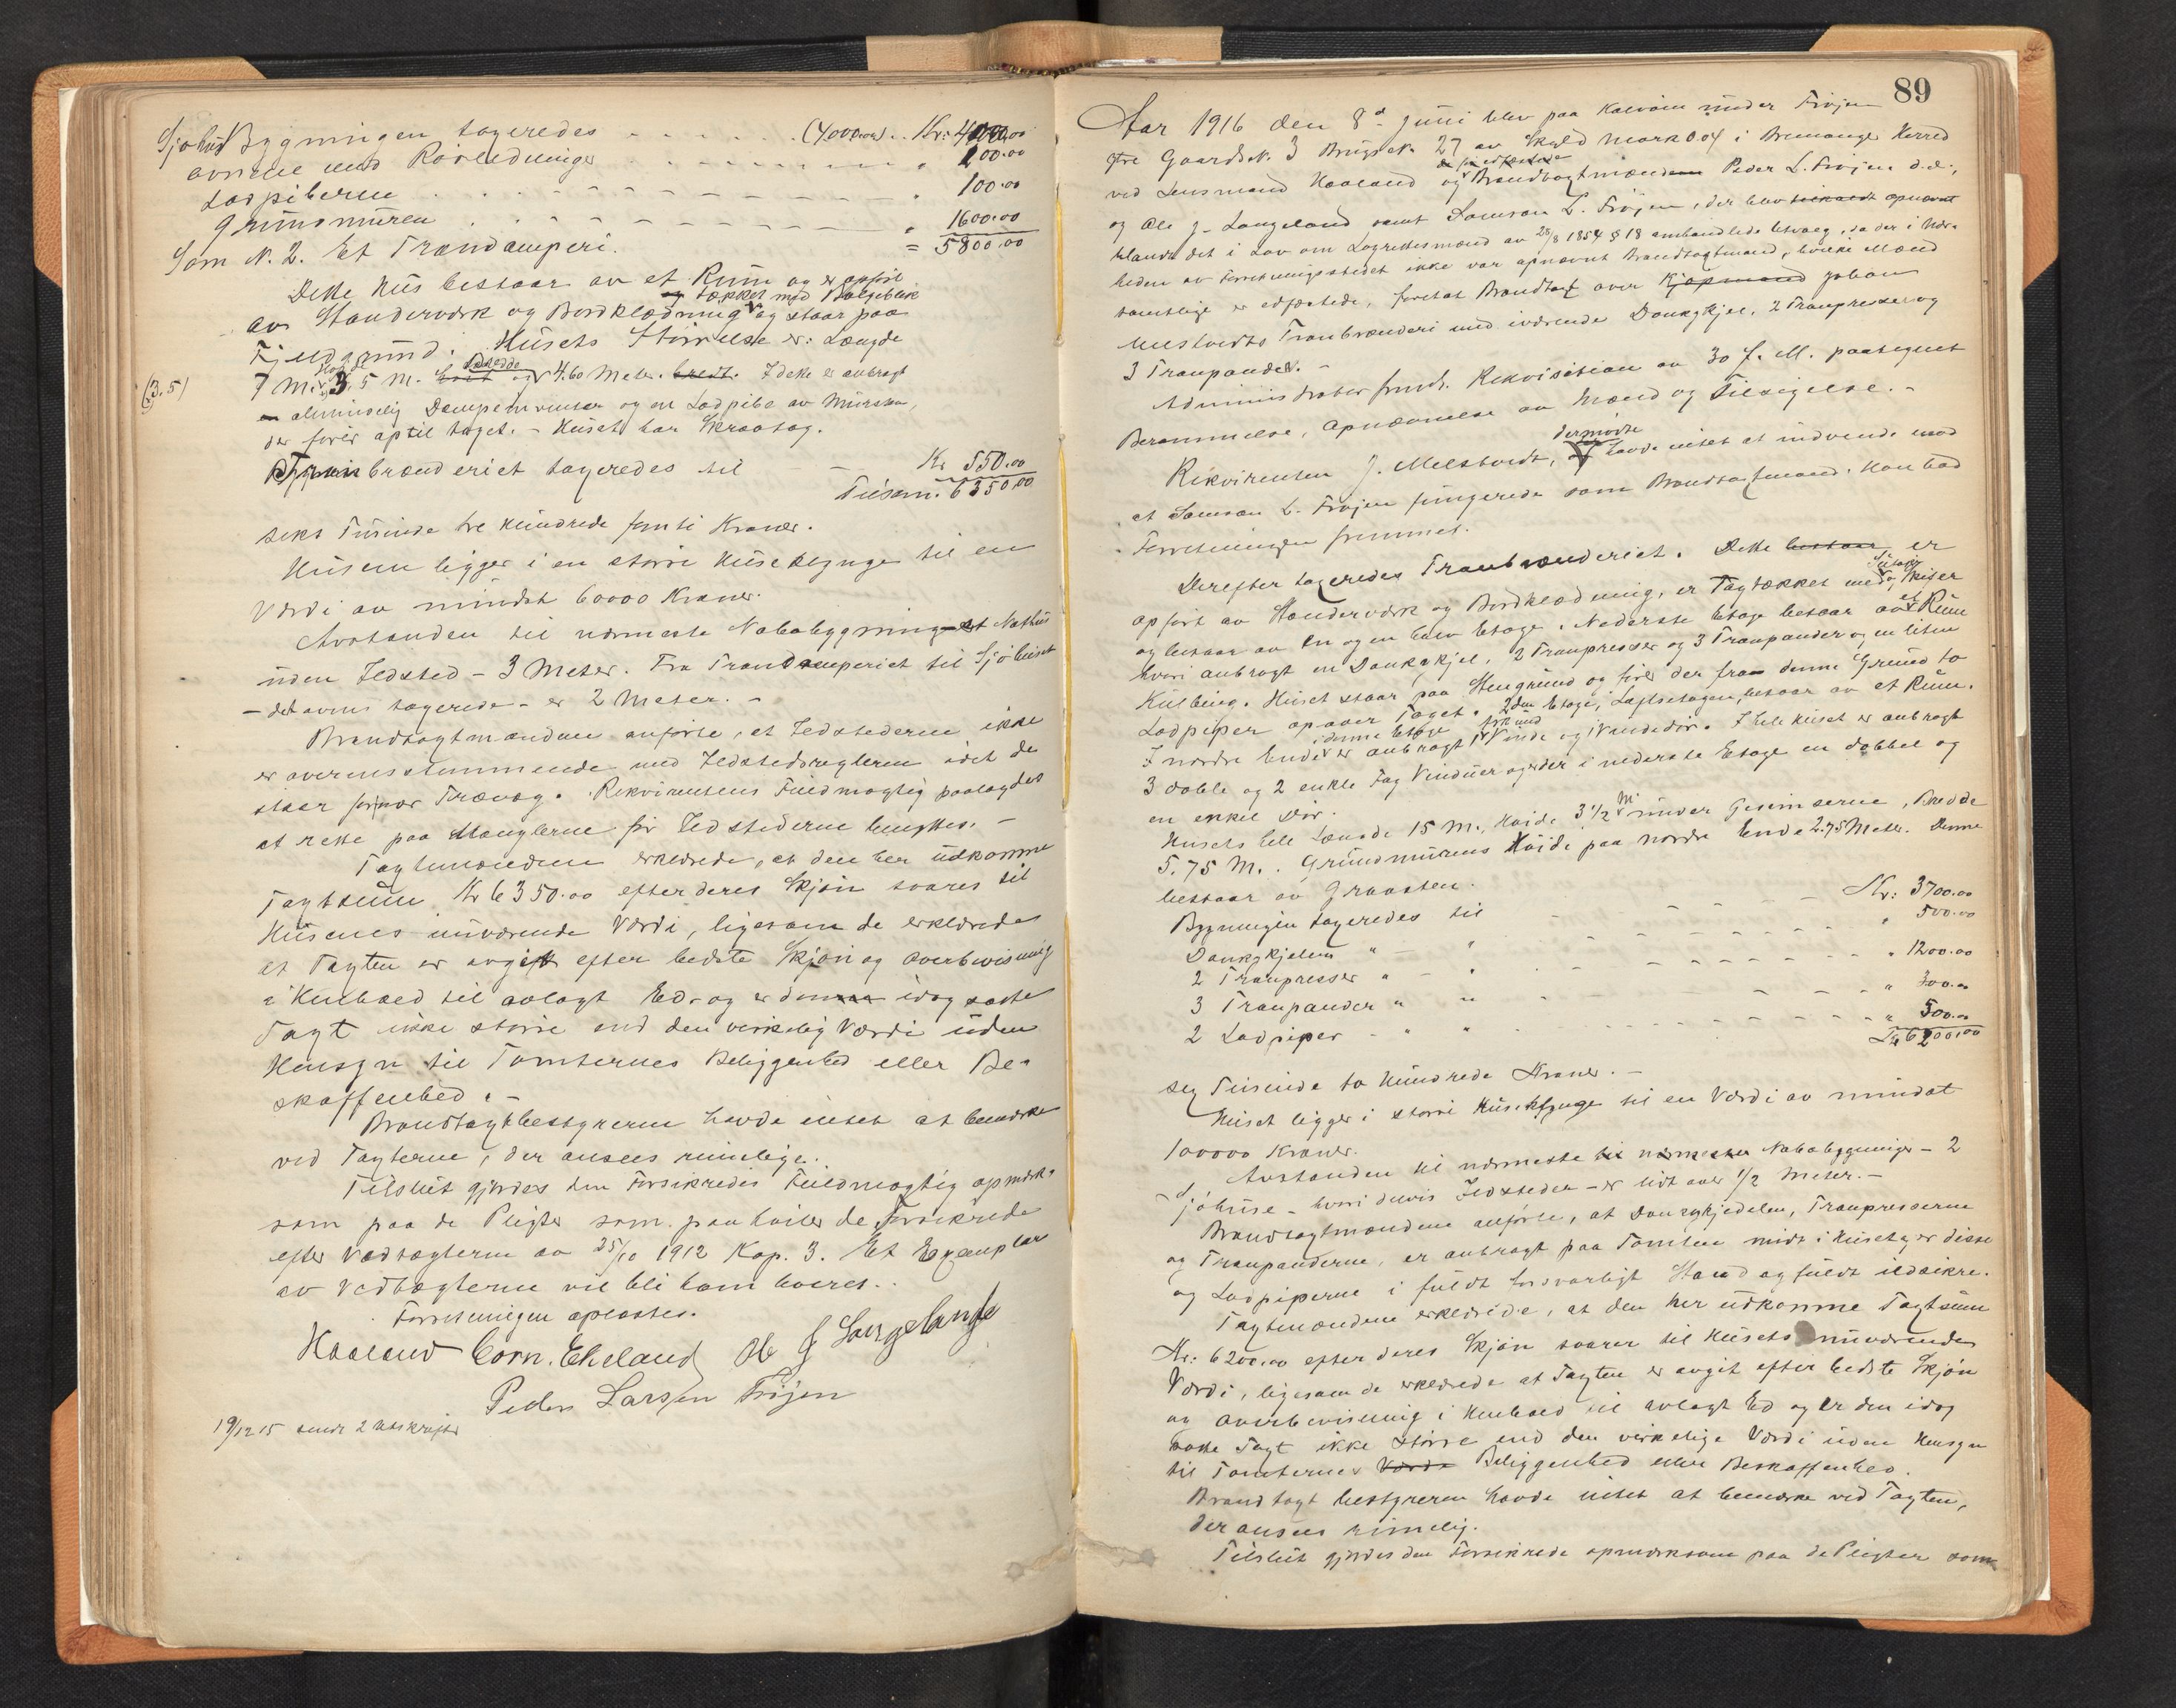 Sjøhus Bygningen taxeredes (4000.00) Kr: 4000.00
ovnene med Rørledninger " 100.00
Ladpiberne " 100.00
Grundmuren " 1600.00
Som N. 2. Et Trandamperi. = 5800.00
Dette Hus bestaar av et Rum og er opført
og tækket med Bølgeblik
av Standerværk og Bordklædning og staar paa
Fjeldgrund. Husets Størrelse er: Længde
(3.5) 7 M. Høide 3,5 M. og Bredde 4.60 Meter. bredt. I dette er anbragt
en almindelig Dampe og en Ladpibe av Mursten,
der fører op til taget. - Huset har Skraatag.
Tranbrænderiet taxeredes til - Kr 550.00
Tilsam. 6350.00
seks Tusinde tre Hundrede femti Kroner.
Husene ligger i en større Huseklynge til en
Værdi av mindst 60000 Kroner.
Avstanden til nærmeste Nabobygning et Nøthus
uden Ildsted - 3 Meter. Fra Trandamperiet til Sjøhuset
- det ovens taxerede - er 2 Meter. -
Brandtaxtmændene anførte, at Ildstederne ikke
er overensstemmende med Ildstedsreglerne idet de
staar for nær Trævæg. Rekvirentens Fuldmægtig paalagdes
at rette paa Manglerne før Ildstederne benyttes. -
Taxtmændene erklærede, at den her udkomne
Taxtsum Kr 6350.00 efter deres Skjøn svarer til
Husenes nuværende Værdi, ligesom de erklærede
at Taxten er avgit efter bedste Skjøn og Overbevisning
i Henhold til avlagt Ed - og er denne idag satte
Taxt ikke større end den virkelig Værdi uden
Hensyn til Tomternes Beliggenhed eller Be-
skaffenhed. -
Brandtaxtbestyreren havde intet at bemærke
ved Taxterne, der ansees rimelige.
Tilslut gjordes den Forsikredes Fuldmægtig opmærk-
som paa de Pligter som paahviler de Forsikrede
efter Vedtægterne av 25/10 1912 Kap. 3. Et Exemplar
av Vedtægterne vil bli ham leveret.
Forretningen oplæstes.
Haaland Corn. Ekeland Ole J Langeland
Peder Larsen Frøjen
19/12 15 sendt 2 Utskrifter
89
Aar 1916 den 8d Juni blev paa Kalvøen under Frøjen
ytre Gaards N. 3 Brugs N. 27 av Skyld mark 0.04 i Bremanger Herred
de edfæstede
ved Lensmand Haaland og Brandtaxtmændene Peder L. Frøjen d.æ.,
og Ole J. Langeland samt Samson L. Frøjen, der blev tilkaldt opnævnt
blandt det i Lov om Lagrettesmænd av 28/8 1854 § 18 ombandlede Utvalg, da der i Nær-
heden av Forretningsstedet ikke var opnævnt Brandtaxtmænd, hvilke Mænd
samtlige er edfæstede, foretat Brandtaxt over Kjøpmand Johan
Meltvedts Tranbrænderi med iværende Dampkjel, 2 Tranpresser og
3 Tranpander. -
Administrator freml. Rekvisition av 30 f. M. paategnet
Berammelse, Opnævnelse av Mænd og Tilsigelse. -
dermøtte
Rekvirenten J. Meltvedt, havde intet at indvende mod
at Samson L. Frøjen fungerede som Brandtaxtmand. Han bad
Forretningen fremmet.
Derefter taxeredes Tranbrænderiet. Dette bestaar er
opført av Stenderværk og Bordklædning, er Tagtækket med og Skifer
og bestaar av en og en halv Etage. Nederste Etage bestaar av et Rum
hvori anbragt en Dampkjel, 2 Tranpresser og 3 Tranpander og en liten
Kulbing. Huset staar paa Stengrund og fører der fra denne Grund to
Ladpiper op over Taget. 2den Etage, Loftsetagen, bestaar av et Rum.
I nordre Ende i denne Etage er anbragt 1 Vinde og 1 Vindedør. I hele Huset er anbragt
3 doble og 2 enkle Fag Vinduer og der i nederste Etage en dobbel og
en enkel Dør.
Husets hele Længde 15 M., Høide 3 1/2 M under Gesimserne, Bredde
5,75 M. Grundmurens Høide paa nordre Ende 2.75 Meter. Denne
bestaar av Graasten.
Bygningen taxeredes til Kr: 3700.00
Dampkjelen " " " 500.00
2 Tranpresser " " " 1200.00
3 Tranpander " " " 300.00
2 Ladpiper " " " 500.00
Kr 6200.00
sex Tusinde to Hundrede Kroner. -
Huset ligger i større Huseklynge til en Værdi av mindst
100000 Kroner.
Avstanden til nærmeste til nærmeste Nabobygninger - 2
Sjøhuse - hvori delvis Ildsteder - er lidt over 1/2 Meter. -
Brandtaxtmændene anførte, at Dampkjedelen, Tranpresserne
og Tranpanderne, er anbragt paa Tomten midt i Huset og er disse
og Ladpiperne i fuldt forsvarligt Stand og fuldt ildsikre.
Taxtmændene erklærede, at den her udkomne Taxtsum
Kr: 6200.00 efter deres Skjøn svarer til Husets nuværende
Værdi, ligesom de erklærede at Taxten er avgit efter bedste Skjøn
og Overbevisning i Henhold til avlagt Ed og er den idag
satte Taxt ikke større end den virkelige Værdi uden Hensyn
til Tomternes Værdi Beliggenhed eller Beskaffenhed.
Brandtaxtbestyreren havde intet at bemærke ved Taxten,
der ansees rimelig.
Tilslut gjordes den Forsikrede opmærksom paa de Pligter som